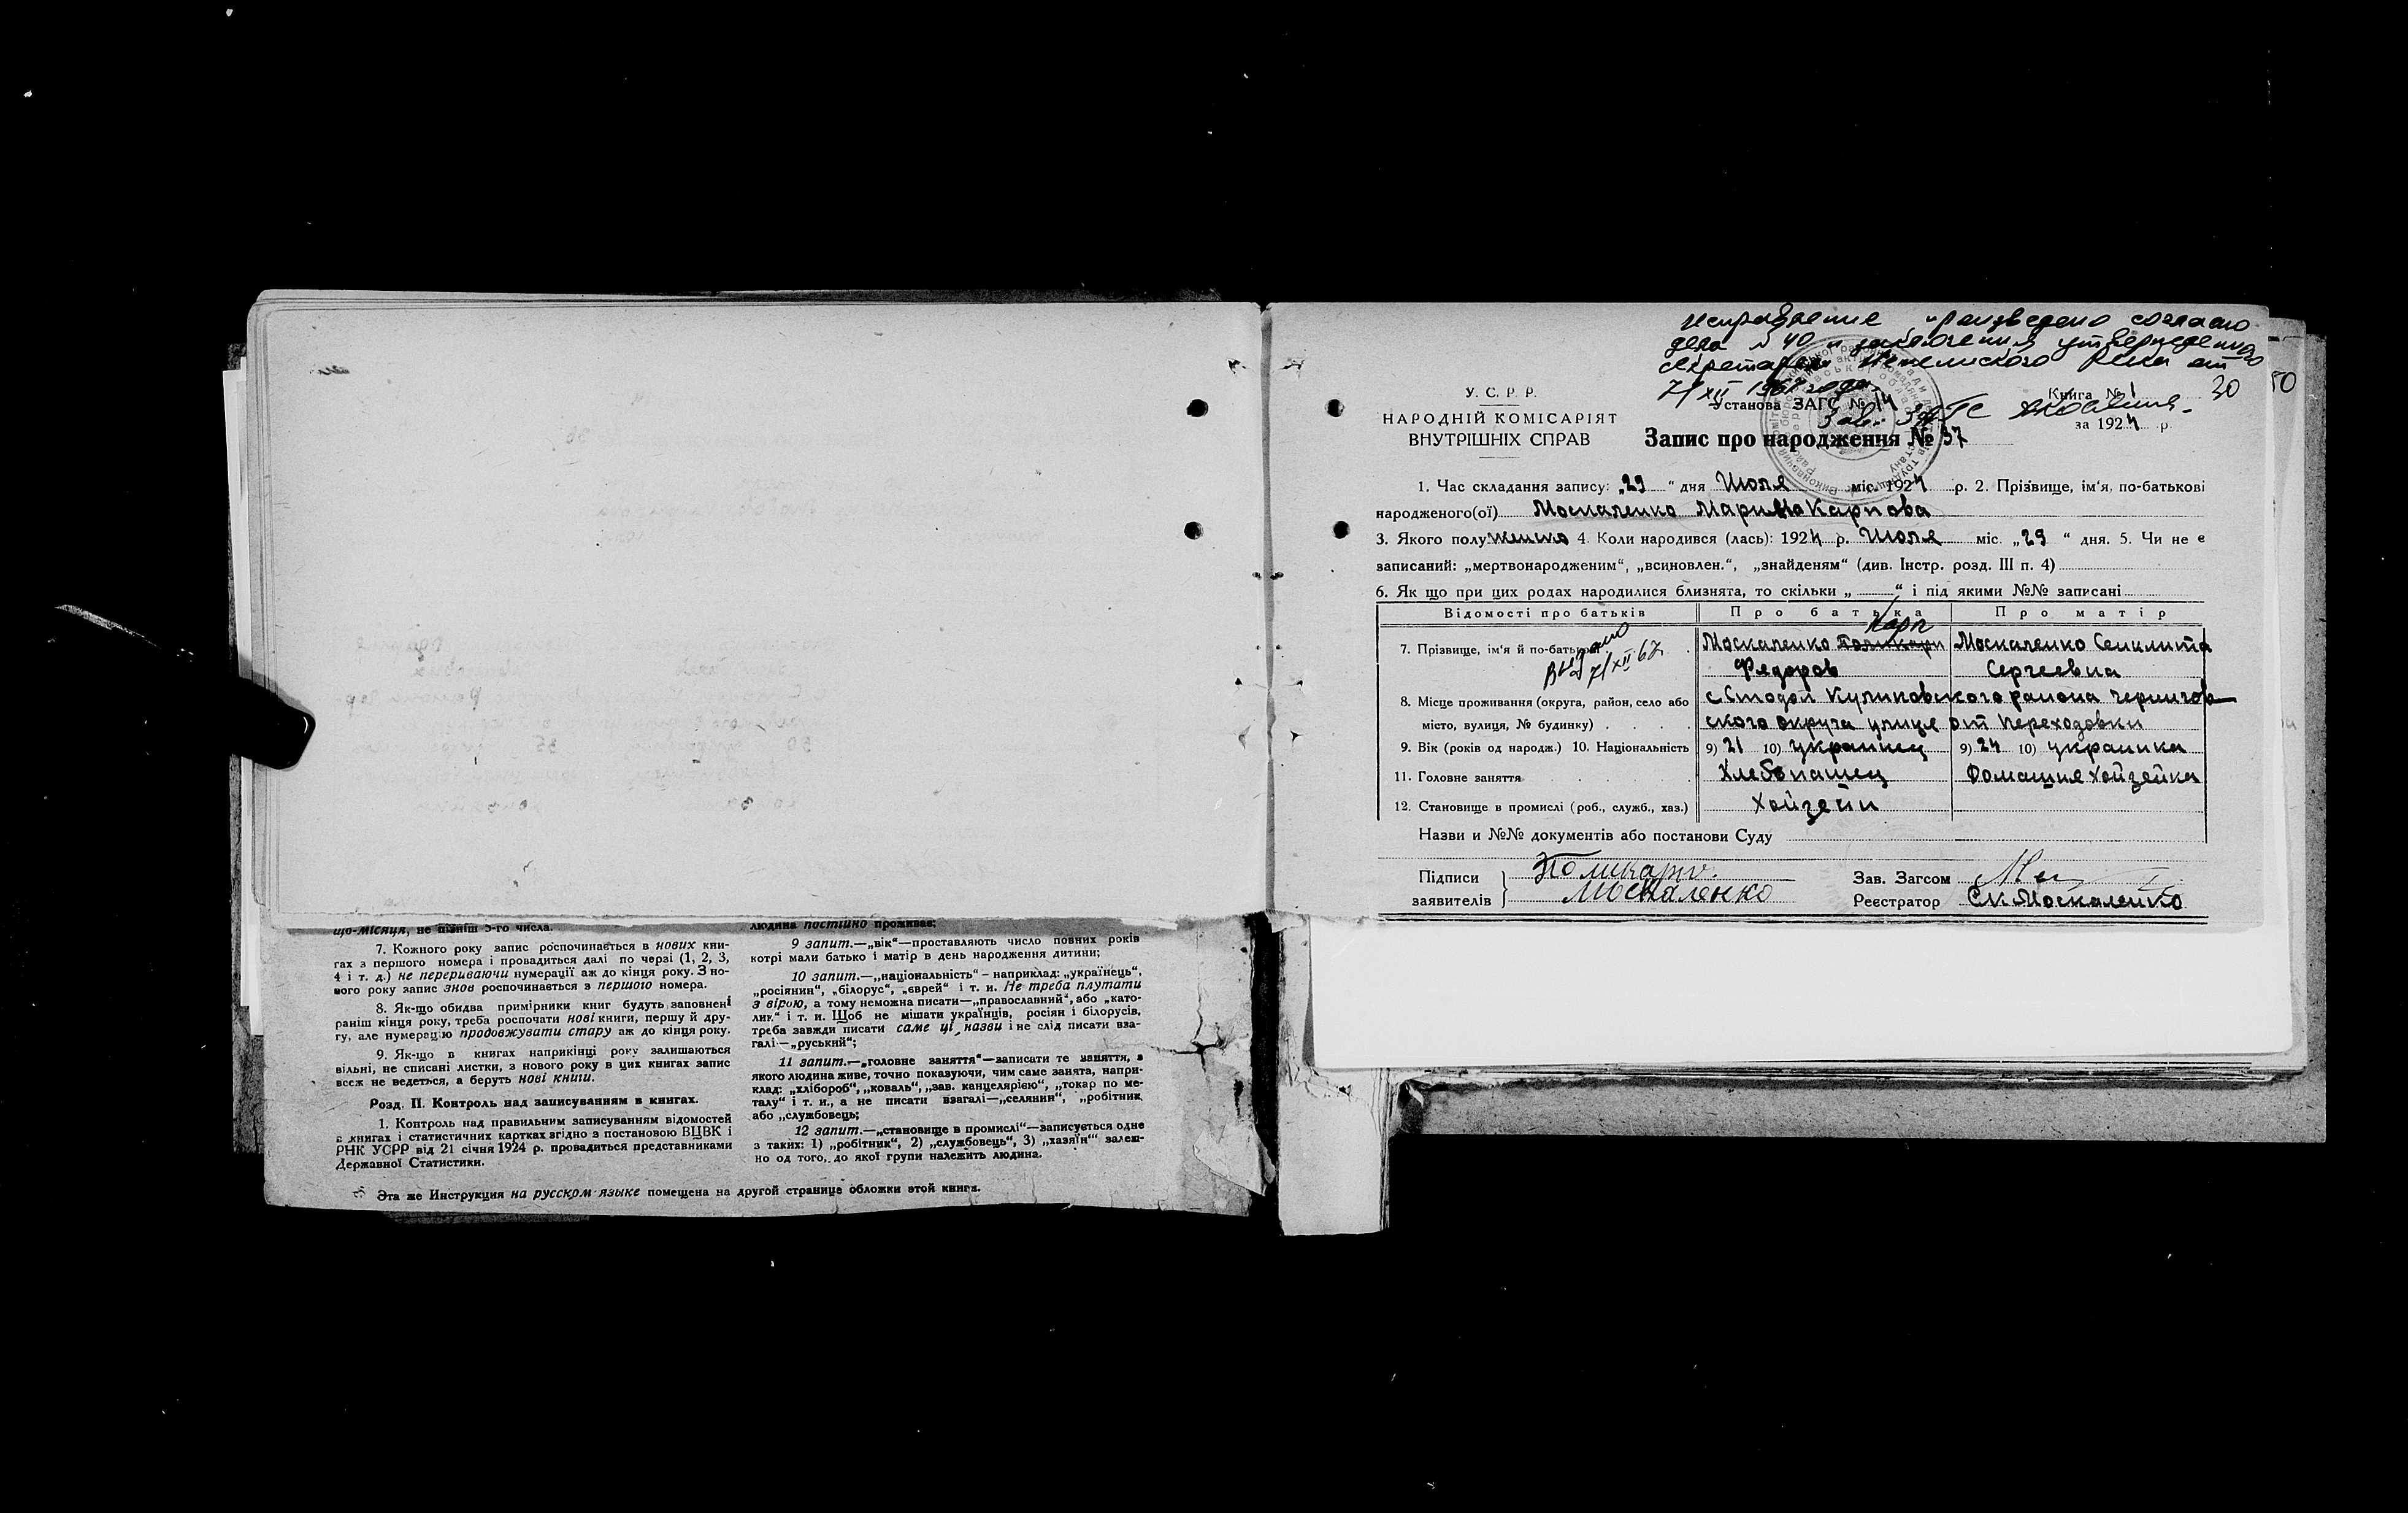 що-місяця, не пізніш 5-го числа.
7. Кожного року запис розпочинається в нових кни-
гах з першого номера і провадиться далі по черзі (1, 2, 3,
4 і т. д.) не перериваючи нумерації аж до кінця року. З но-
вого року запис знов розпочинається з першого номера.
8. Як-що обидва примірники книг будуть заповнені
раніш кінця року, треба розпочати нові книги, першу й дру-
гу, але нумерацію продовжувати стару аж до кінця року.
9. Як-що в книгах наприкінці року залишаються
вільні, не списані листки, з нового року в цих книгах запис
всеж не ведеться, а беруть нові книги.
Розд. II. Контроль над записуванням в книгах.
1. Контроль над правильним записуванням відомостей
в книгах і статистичних картках згідно з постановою ВЦВК і
РНК УСРР від 21 січня 1924 р. провадиться представниками
Державної Статистики.
людина постійно проживає;
9 запит.—„вік“—проставляють число повних років
котрі мали батько і матір в день народження дитини;
10 запит.—„національність“ – наприклад: „українець“,
„росіянин“, „білорус“, „єврей“ і т. и. Не треба плутати
з вірою, а тому неможна писати—„православний“, або „като-
лик“ і т. и. Щоб не мішати українців, росіян і білорусів,
треба завжди писати саме ці назви і не слід писати вза-
галі—„руський“;
11 запит.—„головне заняття“—записати те заняття, з
якого людина живе, точно показуючи, чим саме занята, напри-
клад: „хлібороб“, „коваль“, „зав. канцелярією“, „токар по ме-
талу“ і т. и., а не писати взагалі—„селянин“, „робітник
або „службовець;
12 запит.—„становище в промислі“—записується одне
з таких: 1) „робітник“, 2) „службовець“, 3) „хазяїн“ залеж-
но од того, до якої групи належить людина.
Эта же Инструкция на русском языке помещена на другой странице обложки этой книги.
Исправление произведено согласно
дела № 40 и заключения утвержденного
секретарем от
7/XII 1967 года
Зав. ЗАГС
У. С. Р. Р.
НАРОДНІЙ КОМІСАРІЯТ
ВНУТРІШНІХ СПРАВ
Установа ЗАГС № 14
Книга № 1
30
50
за 1924 р.
Запис про народження № 37
1. Час складання запису: „29“ дня Июля міс. 1924 р. 2. Прізвище, ім‘я, по-батькові
народженого(ої) Москаленко Марина Карпова
3. Якого полу женско 4. Коли народився (лась): 1924 р. Июля міс. „29“ дня. 5. Чи не є
записаний: „мертвонародженим“, „всиновлен.“, „знайденям“ (див. Інстр. розд. III п. 4)
6. Як що при цих родах народилися близнята, то скільки „ “ і під якими №№ записані
Відомості про батьків Про батька Про матір
Карп
7. Прізвище, ім‘я й по-батькові Москаленко Поликарп Москаленко Секлита
Выдано 7/XII 67 Федоров Сергеевна
8. Місце проживання (округа, район, село або с Стодол Куликовского района Чернигов
місто, вулиця, № будинку) ского округа улице от Переходовки
9. Вік (років од народж.) 10. Національність 9) 21 10) украинец 9) 24 10) украинка
11. Головне заняття Хлебопашец Домашня Хойзейка
12. Становище в промислі (роб., служб., хаз.) Хойзеин
Назви и №№ документів або постанови Суду
Підписи Поликарп.
заявителів Москаленко
Зав. Загсом
Реєстратор Ск Москаленко